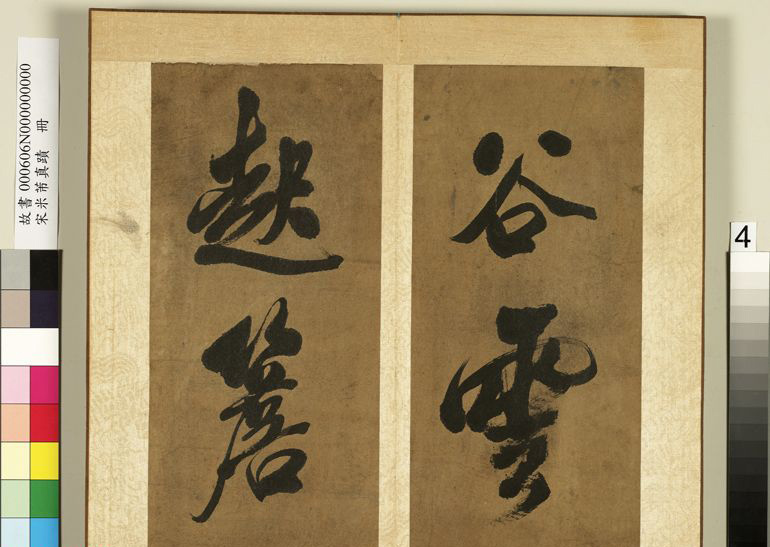 故書 000606N000000000
宋米芾真蹟 冊
谷雲
越簷
4